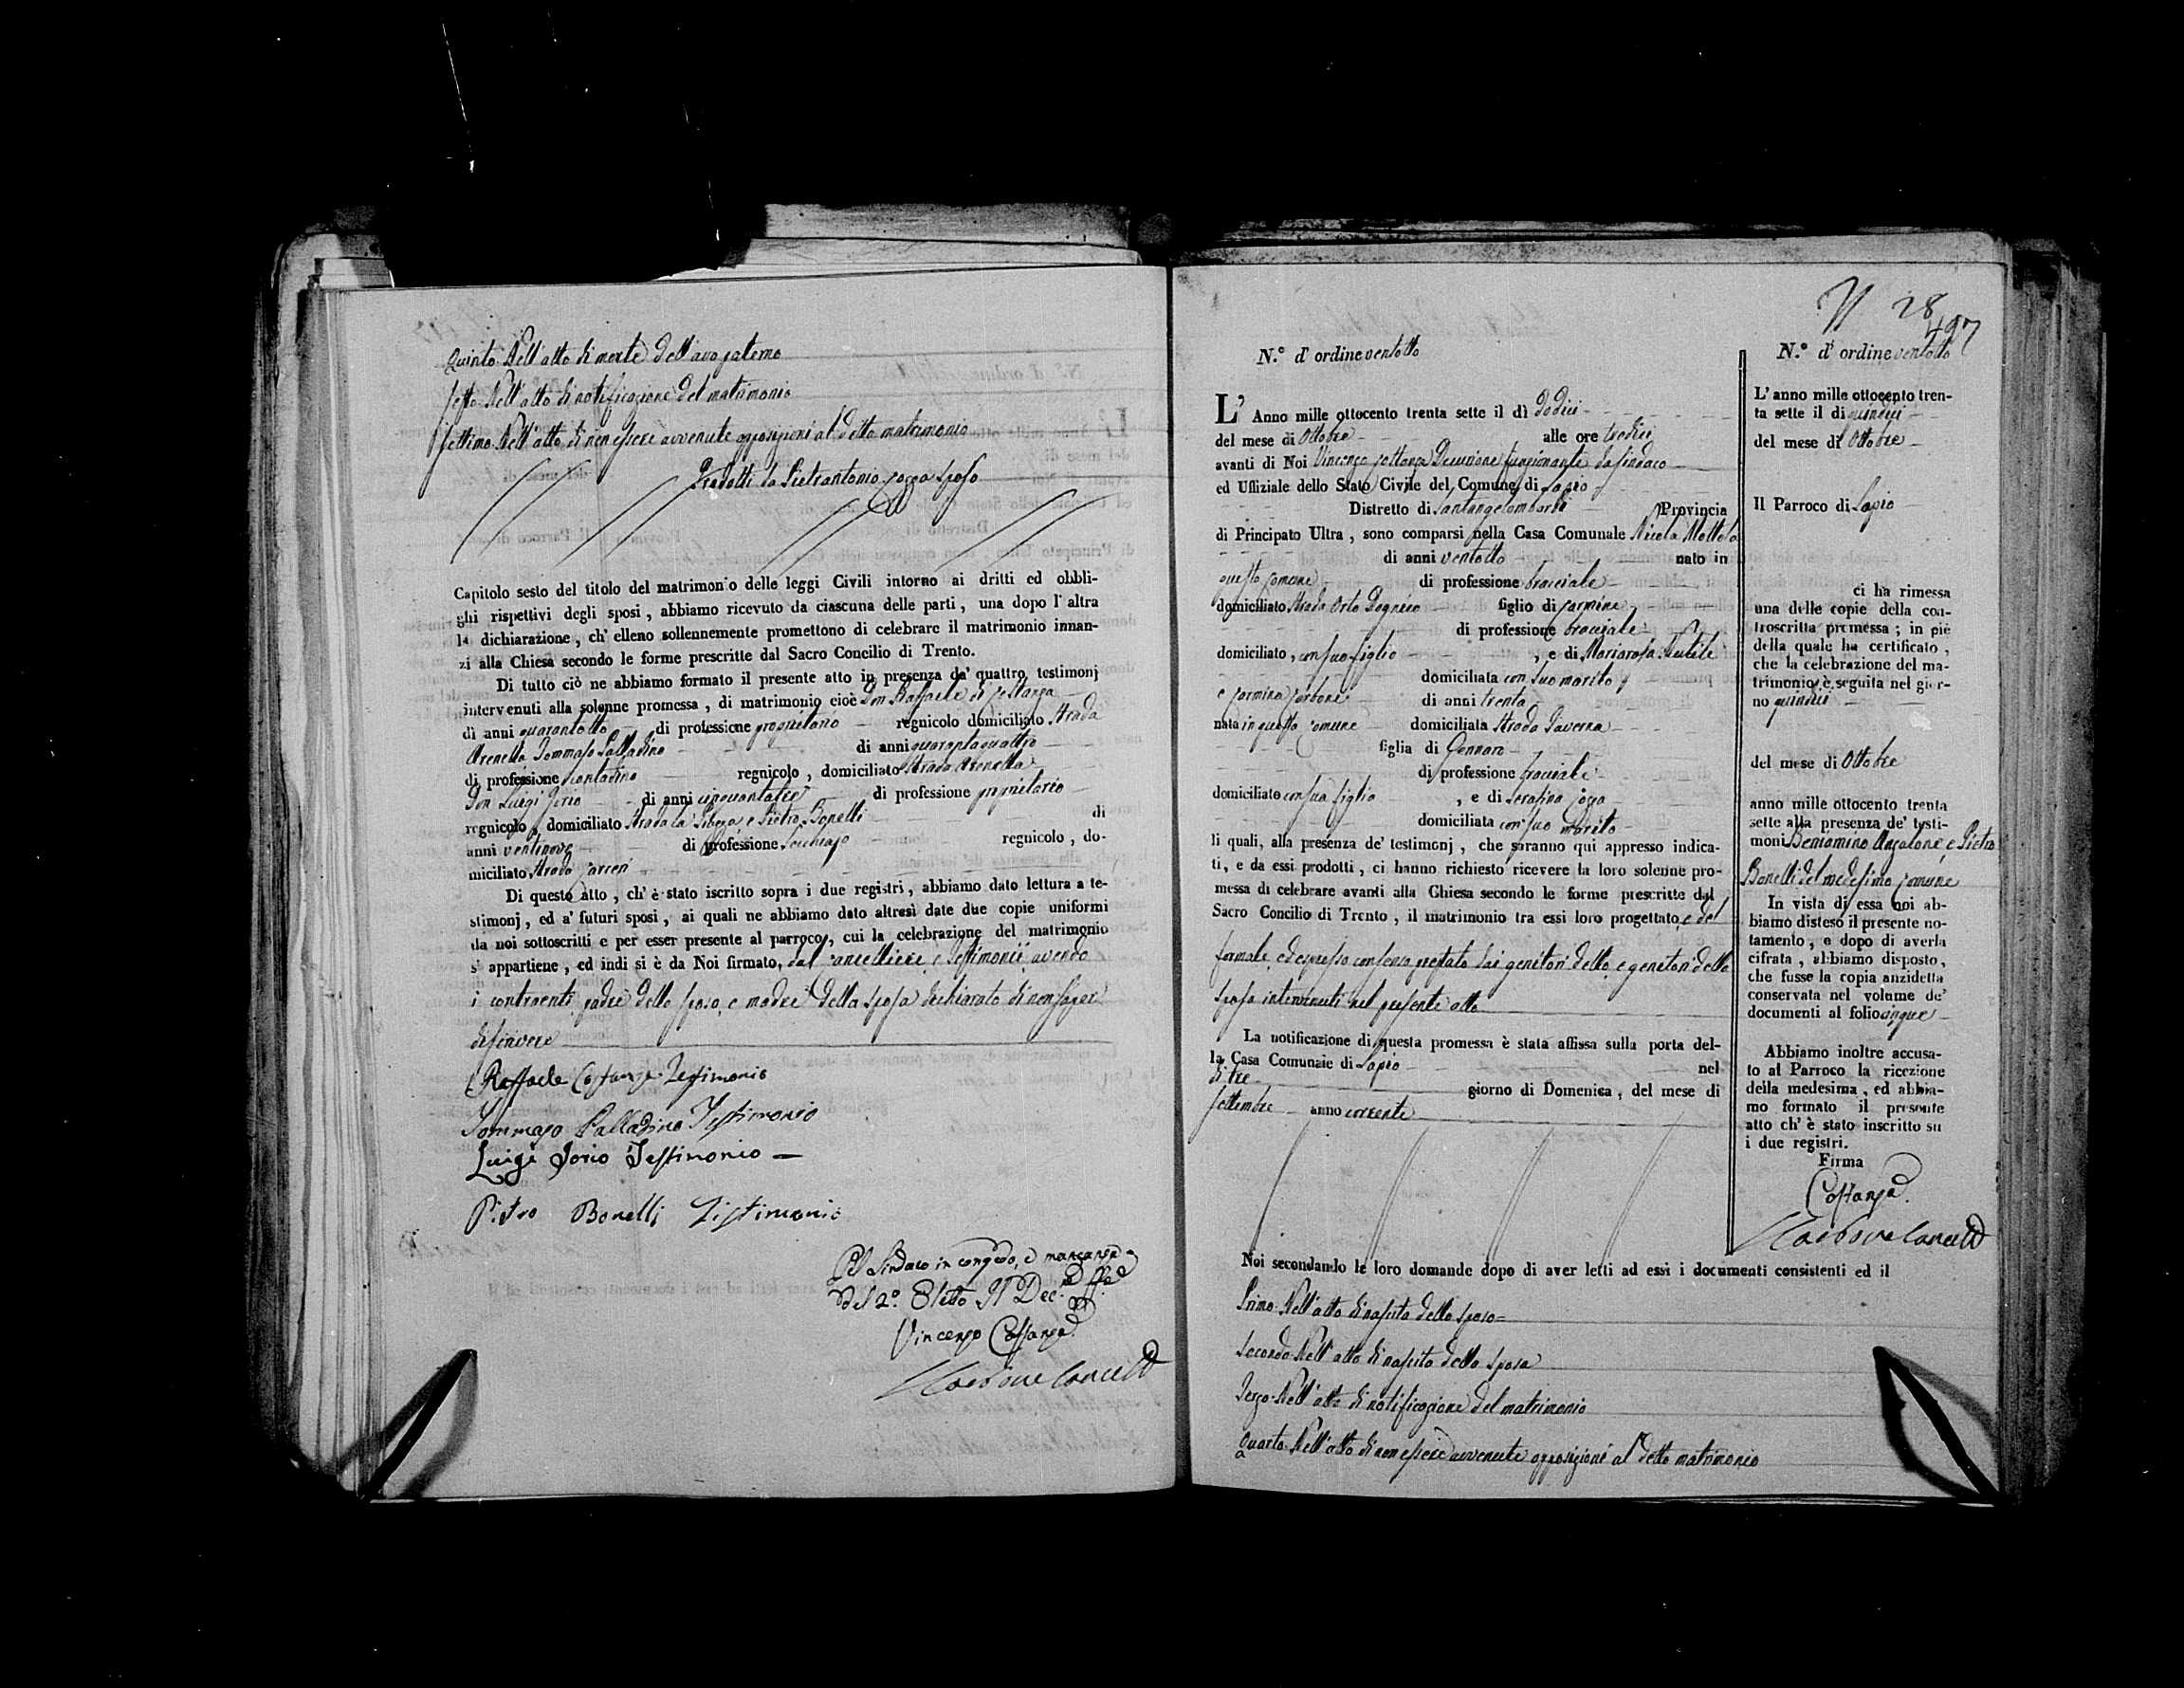 Quinto. Dell'atto di morte dell'avo paterno
Sesto. Dell'atto di notificazione del matrimonio
Settimo. Dell'atto di non essere avvenute opposizioni al detto matrimonio
Prodotti da Pietrantonio sposo
Capitolo sesto del titolo del matrimonio delle leggi Civili intorno ai dritti ed obbli-
ghi rispettivi degli sposi, abbiamo ricevuto da ciascuna delle parti, una dopo l'altra
la dichiarazione, ch'elleno sollennemente promettono di celebrare il matrimonio innan-
zi alla Chiesa secondo le forme prescritte dal Sacro Concilio di Trento.
Di tutto ciò ne abbiamo formato il presente atto in presenza de' quattro testimonj
intervenuti alla solenne promessa, di matrimonio cioè Don Raffaele di Costanza
di anni quarantotto di professione proprietario regnicolo domiciliato Strada
Arenella Tommaso Palladino di anni quarantaquattro
di professione contadino regnicolo, domiciliato Strada Arenella
Don Luigi Jorio di anni cinquantatre di professione proprietario
regnicolo, domiciliato Strada la Libera e Pietro Bonelli di
anni ventinove di professione regnicolo, do-
miciliato Strada
Di questo atto, ch'è stato iscritto sopra i due registri, abbiamo dato lettura a te-
stimonj, ed a' futuri sposi, ai quali ne abbiamo dato altresì date due copie uniformi
da noi sottoscritti e per esser presente al parroco, cui la celebrazione del matrimonio
s'appartiene, ed indi si è da Noi firmato, dal cancelliere, e testimonii avendo
i contraenti, padre dello sposo, e madre della sposa dichiarato di non saper
di scrivere
Raffaele Costanza Testimonio
Tommaso Palladino Testimonio
Luigi Jorio Testimonio —
Pietro Bonelli Testimonio
Pel Sindaco in congedo, e mancanza
del 2.º Eletto Il Dec.
Vincenzo Costanza
N 28
497
N.º d'ordine ventotto
L'Anno mille ottocento trenta sette il dì dodici
del mese di Ottobre alle ore tredici
avanti di Noi Vincenzo Costanza Decurione funzionante da Sindaco
ed Uffiziale dello Stato Civile del Comune di Lapio
Distretto di Santangelombardi Provincia
di Principato Ultra, sono comparsi nella Casa Comunale Nicola Mottola
di anni ventotto nato in
questo Comune di professione bracciale
domiciliato Strada Orto figlio di Carmine
di professione bracciale
domiciliato, con suo figlio, e di Mariarosa
domiciliata con suo marito
e Carmina Carbone di anni trenta
nata in questo Comune domiciliata Strada Taverna
figlia di Gennaro
di professione bracciale
domiciliato con sua figlia, e di Serafina
domiciliata con suo marito
li quali, alla presenza de' testimonj, che saranno qui appresso indica-
ti, e da essi prodotti, ci hanno richiesto ricevere la loro solenne pro-
messa di celebrare avanti alla Chiesa secondo le forme prescritte dal
Sacro Concilio di Trento, il matrimonio tra essi loro progettato, e del
formale, ed espresso consenso prestato dai genitori dello, e genitori della
sposa intervenuti nel presente atto
La notificazione di questa promessa è stata affissa sulla porta del-
la Casa Comunale di Lapio nel
di tre giorno di Domenica, del mese di
Settembre anno corrente
Noi secondando le loro domande dopo di aver letti ad essi i documenti consistenti ed il
Primo. Dell'atto di nascita dello sposo
Secondo. Dell'atto di nascita della sposa
Terzo. Dell'atto di notificazione del matrimonio
Quarto. Dell'atto di non essere avvenute opposizioni al detto matrimonio
N.º d'ordine ventotto
L'anno mille ottocento tren-
ta sette il dì quindici
del mese di Ottobre
Il Parroco di Lapio
ci ha rimessa
una delle copie della con-
troscritta promessa; in piè
della quale ha certificato,
che la celebrazione del ma-
trimonio è seguita nel gior-
no quindici
del mese di Ottobre
anno mille ottocento trenta
sette alla presenza de' testi-
moni Beniamino e Pietro
Bonelli del medesimo Comune
In vista di essa noi ab-
biamo disteso il presente no-
tamento, e dopo di averla
cifrata, abbiamo disposto,
che fusse la copia anzidetta
conservata nel volume de'
documenti al folio cinque
Abbiamo inoltre accusa-
to al Parroco la ricezione
della medesima, ed abbia-
mo formato il presente
atto ch'è stato inscritto su
i due registri.
Firma
Costanza